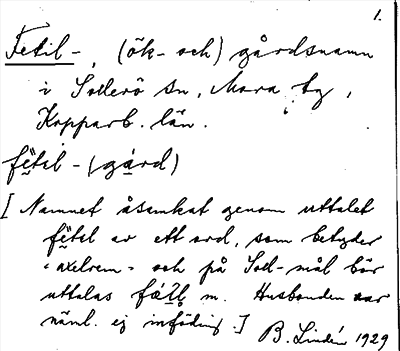 1.
Fetil-, (ök- och) gårdsnamn
i Sollerö sn, Mora tg,
Kopparb. län.
fètil - (gård)
[Namnet åsamkat genom uttalet
fètil av ett ord, som betyder
"axelrem" och på Soll-mål bör
uttalas m. Husbonden var
näml. ej inföding.]
B. Lindén 1929